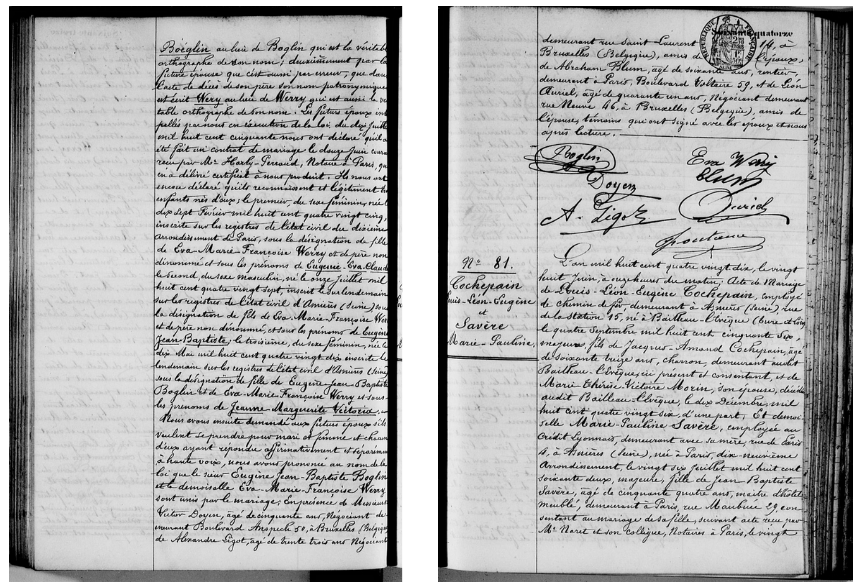 Boëglin au lieu de Boglin qui est la véritable
orthographe de son nom; deuxièmement par la
future épouse que c'est aussi par erreur, que dans
l'acte de décès de son père son nom patronymique
est écrit Wéry au lieu de Werry qui est aussi la véri
table orthographe de son nom. Les futurs époux inter
pellés par nous en exécution de la loi du dix juillet
mil huit cent cinquante nous ont déclaré qu'il a
été fait un contrat de mariage le douze juin courant
reçu par Me Harly-Perraud, Notaire à Paris, qui
en a délivré certificat à nous produit. Ils nous ont
encore déclaré qu'ils reconnaissent et légitiment trois
enfants nés d'eux: le premier, du sexe féminin, né le
dix sept Février mil huit cent quatre vingt cinq,
inscrite sur les registres de l'état civil du dixième
arrondissement de Paris, sous la désignation de fille
de Eva-Marie-Françoise Werry et de père non
dénommé et sous les prénoms de Eugénie-Eva-Claude
le second, du sexe masculin, né le onze juillet mil
huit cent quatre vingt sept, inscrit le surlendemain
sur les registres de l'état civil d'Asnières (Seine) sous
la désignation de fils de Eva-Marie-Françoise Werry
et de père non dénommé, et sous les prénoms de Eugène
Jean-Baptiste, le troisième, du sexe féminin, née le
dix Mai mil huit cent quatre vingt dix inscrite le
lendemain sur les registres de l'état civil d'Asnières (Seine)
sous la désignation de fille de Eugène-Jean-Baptiste
Boglin et de Eva-Marie-Françoise Werry et sous
les prénoms de Jeanne-Marguerite Victoria.
Nous avons ensuite demandé aux futurs époux s'ils
veulent se prendre pour mari et femme et chacun
d'eux ayant répondu affirmativement et séparément
à haute voix, nous avons prononcé au nom de la
loi que le sieur Eugène-Jean-Baptiste Boglin
et la demoiselle Eva-Marie-Françoise Werry
sont unis par le mariage; En présence de Messieurs
Victor Doyen, âgé de cinquante ans, Négociant de
meurant Boulevard Anspach 50, à Bruxelles (Belgique)
de Alexandre Ligot, âgé de trente trois ans Négociant
Soixante quatorze
demeurant rue Saint-Laurent 14, à
Bruxelles (Belgique), amis de l'époux,
de Abraham Blum, âgé de soixante ans, rentier,
demeurant à Paris, Boulevard Voltaire 59, et de Léon
Auriel, âgé de quarante un ans, Négociant demeurant
rue Neuve 46, à Bruxelles (Belgique), amis de
l'épouse, témoins qui ont signé avec les époux et nous
après lecture.
Boglin
Eva Werry
Blum
Doyen
A. Ligot
No 81.
Cochepain
Louis-Léon-Eugène
et
Savère
Marie-Pauline.
L'an mil huit cent quatre vingt dix, le vingt
huit Juin, à onze heures du matin, Acte de Mariage
de Louis-Léon-Eugène Cochepain, employé
de chemin de fer, demeurant à Asnières (Seine), rue
de la Station 15, né à Bailleau-l'Évêque (Eure et Loir)
le quatre Septembre mil huit cent cinquante six,
majeur, fils de Jacques-Amand Cochepain, âgé
de soixante treize ans, charron, demeurant audit
Bailleau-l'Évêque, ici présent et consentant, et de
Marie-Thérèse-Victoire Morin, son épouse, décédée
audit Bailleau-l'Évêque, le dix Décembre, mil
huit cent quatre vingt six d'une part, Et demoi
selle Marie-Pauline Savère, employée au
Crédit Lyonnais, demeurant avec sa mère, rue de Paris
4, à Asnières (Seine), née à Paris, dix neuvième
Arrondissement, le vingt six Juillet mil huit cent
soixante deux, majeure, fille de Jean Baptiste
Savère, âgé de cinquante quatre ans, maître d'hôtel
meublé, demeurant à Paris, rue Maubuée 29, con
sentant au mariage de sa fille, suivant acte reçu par
Me Naret et son collègue, Notaires à Paris, le vingt